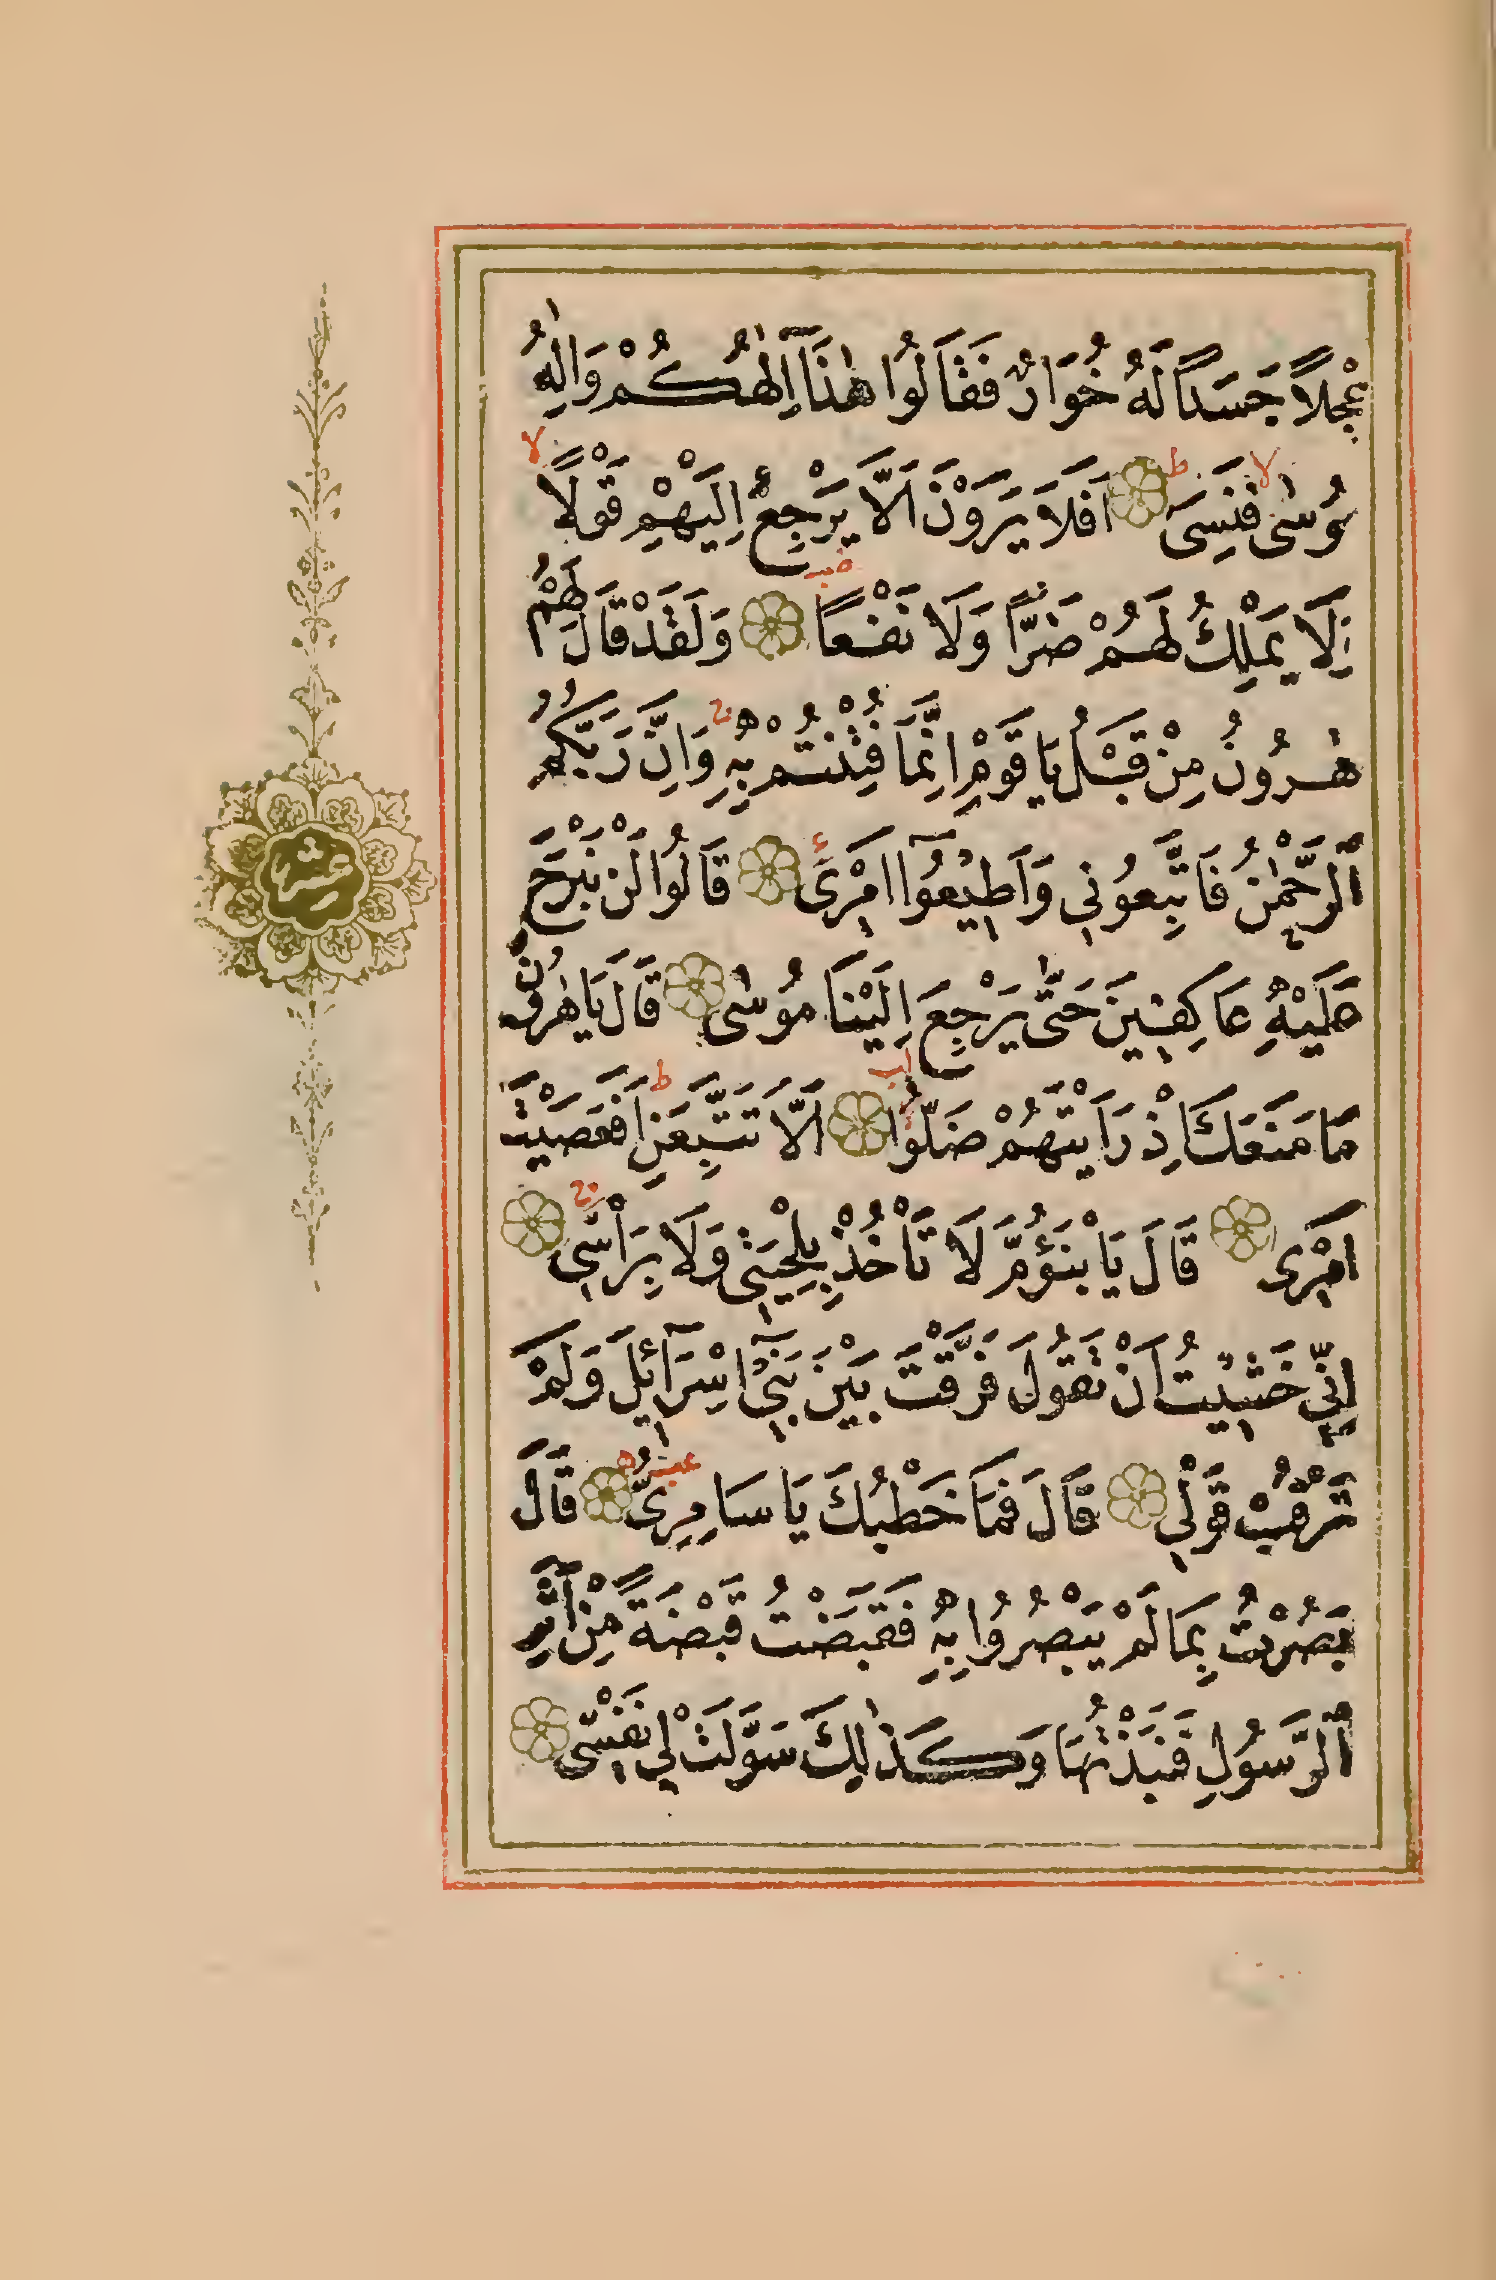 عِجْلاً جَسَداً لَهُ خُوَارٌ فَقَالُوا هٰذَٓا اِلٰهُكُمْ وَاِلٰهُ
مُوسٰى فَنَسِىَ اَفَلَا يَرَوْنَ اَلَّا يَرْجِعُ اِلَيْهِمْ قَوْلًا
وَلَا يَمْلِكُ لَهُمْ ضَرًّا وَلَا نَفْعًا وَلَقَدْ قَالَ لَهُمْ
هٰرُونُ مِنْ قَبْلُ يَا قَوْمِ اِنَّمَا فُتِنْتُمْ بِهِ وَاِنَّ رَبَّكُمُ
الرَّحْمٰنُ فَاتَّبِعُونِى وَاَطِيعُٓوا اَمْرِى قَالُوا لَنْ نَبْرَحَ
عَلَيْهِ عَاكِفِينَ حَتّٰى يَرْجِعَ اِلَيْنَا مُوسٰى قَالَ يَا هٰرُونُ
مَا مَنَعَكَ اِذْ رَاَيْتَهُمْ ضَلُّوا اَلَّا تَتَّبِعَنِ اَفَعَصَيْتَ
اَمْرِى قَالَ يَا بْنَؤُمَّ لَا تَأْخُذْ بِلِحْيَتِى وَلَا بِرَأْسِى
اِنِّى خَشِيتُ اَنْ تَقُولَ فَرَّقْتَ بَيْنَ بَنِٓى اِسْرَٓائِلَ وَلَمْ
تَرْقُبْ قَوْلِى قَالَ فَمَا خَطْبُكَ يَا سَامِرِىُّ قَالَ
بَصُرْتُ بِمَا لَمْ يَبْصُرُوا بِهِ فَقَبَضْتُ قَبْضَةً مِنْ اَثَرِ
الرَّسُولِ فَنَبَذْتُهَا وَكَذٰلِكَ سَوَّلَتْ لِى نَفْسِى